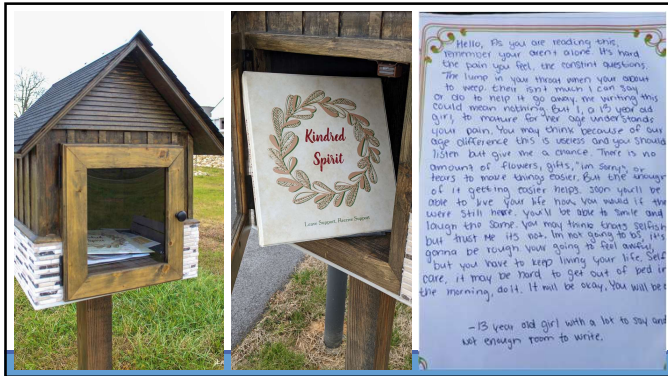 21
Kindred
Spirit
Leave Support, Receive Support
Hello, As you are reading this,
remember your aren't alone. It's hard
the pain you feel, the constint questions.
The lump in your throat when your about
to weep. their isnt much I can say
or do to help it go away, me writing this
could mean nothing. But I, a 13 year old
girl, to mature for her age understands
your pain. You may think because of our
age difference this is useless and you should
listen but give me a chance. There is no
amount of flowers, gifts, "im sorry", or
tears to make things easier. But the
of it getting easier helps. Soon you'll be
able to live your life how you would if the
were still here. you'll be able to smile and
laugh the same. You may think thats selfish
but trust me its not. Im not going to bs, it's
gonna be rough your going to feel awful,
but you have to keep living your life. Self
care, it may be hard to get out of bed in
the morning, do it. It will be okay, You will be
-13 year old girl with a lot to say and
not enough room to write.